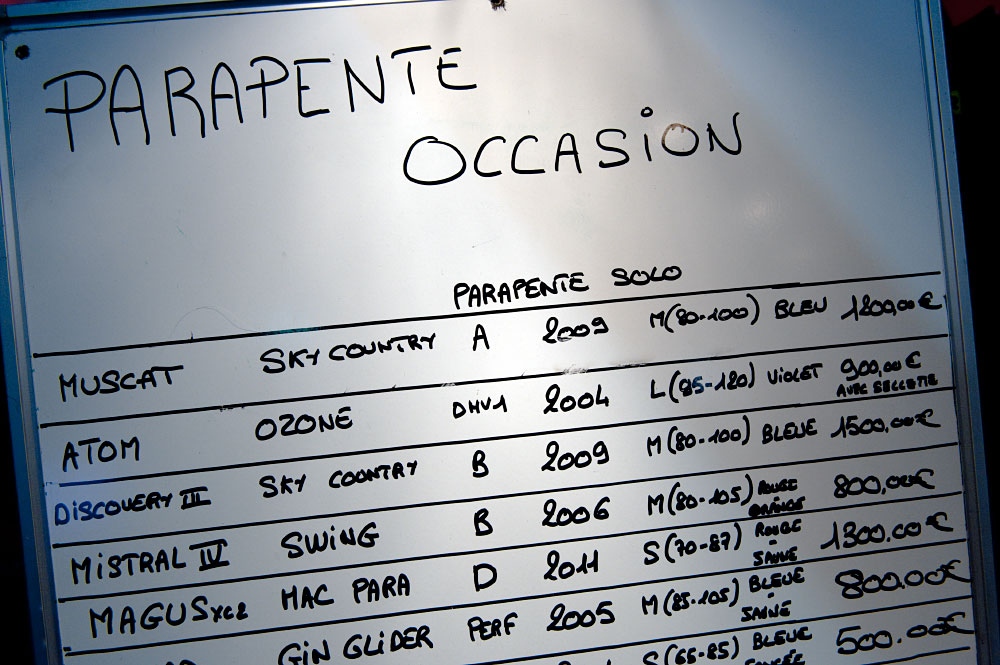 PARAPENTE
OCCASION
PARAPENTE SOLO
MUSCAT SKY COUNTRY A 2009 M(80-100) BLEU 1200,00€
ATOM OZONE DHV1 2004 L(95-120) VIOLET 900,00€
AVEC SELLETTE
DISCOVERY III SKY COONTRY B 2009 M(80-100) BLEUE 1500,00€
MISTRAL IV SWING B 2006 M(80-105) ROUGE 800,00€
ORANGE
MAGUS XC2 MAC PARA D 2011 S(70-87) ROUGE 1300.00€
- SAUNE
GIN GLIDER PERF 2005 M(85-105) BLEUE 800.00€
- SAUNE
S(65-85) BLEUE 500.00€